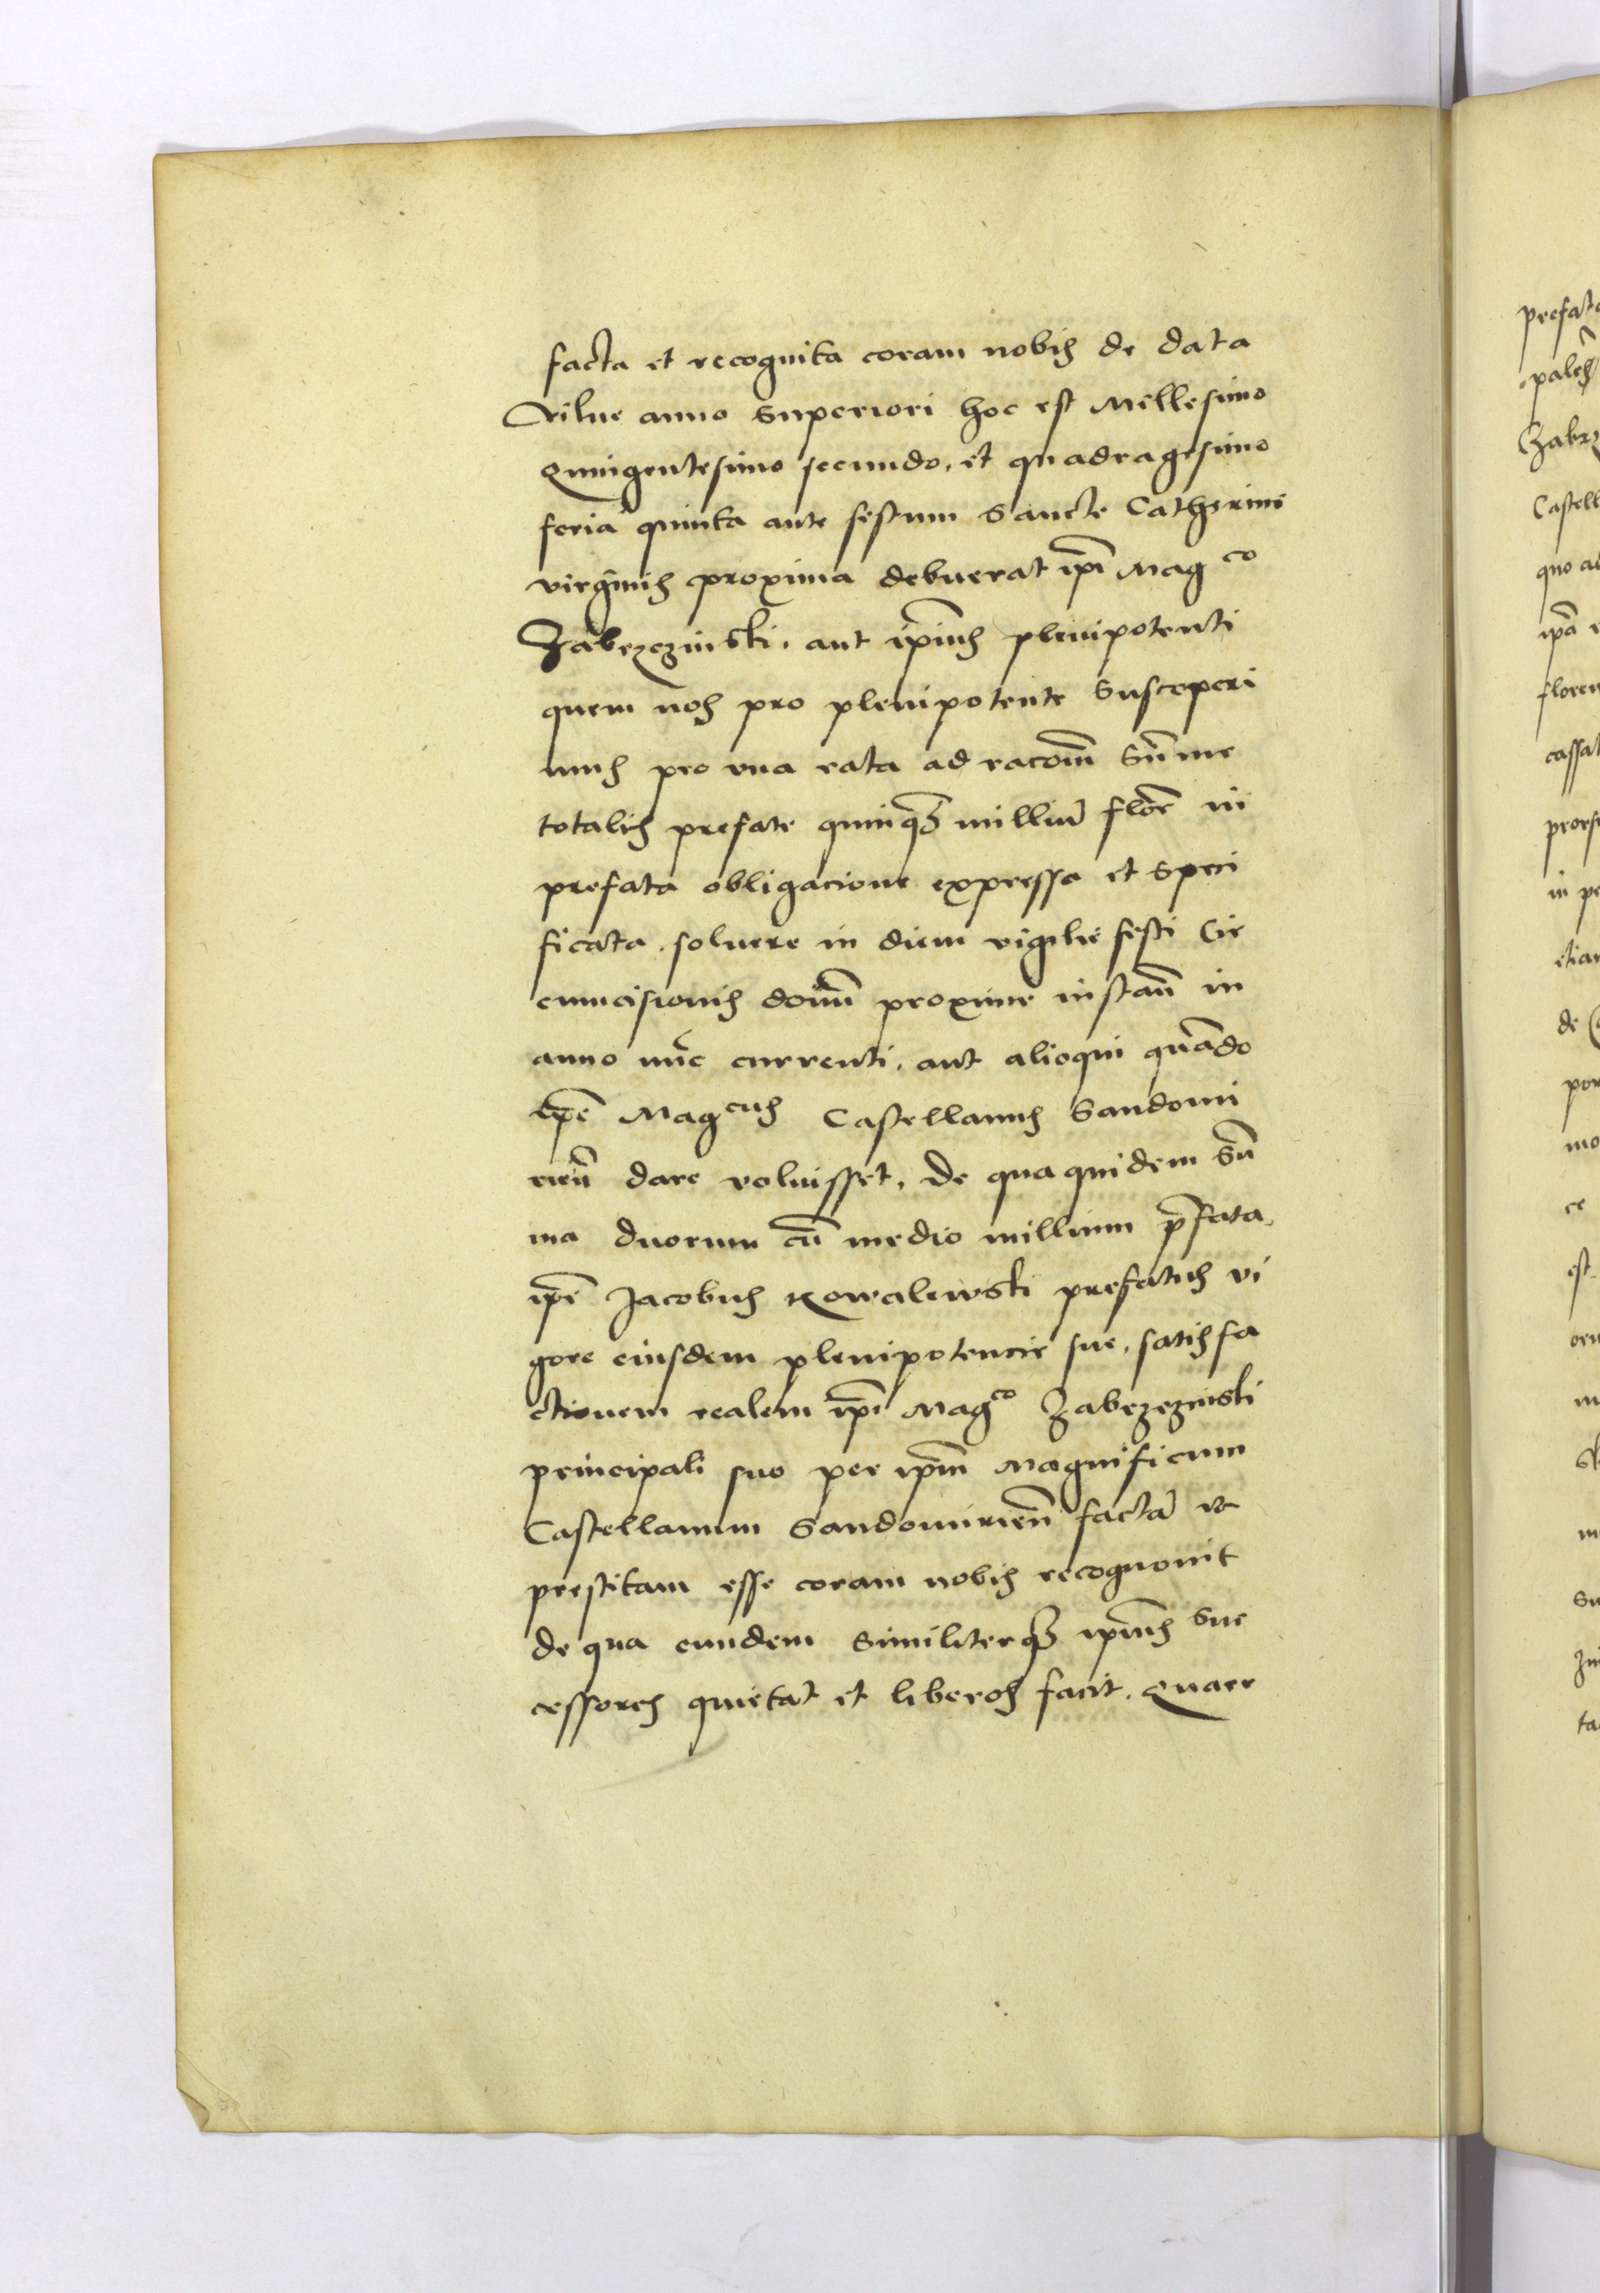 facta et recognita coram nobis de data
Vilne anno Superiori hoc est Millesimo
Quingentesimo secundo, et quadragesimo
feria quinta ante festum Sancte Catherine
virginis proxima debuerat ip̄i Mag^co
Zabrzezinski, aut ip̄ius plenipotenti
quem nos pro plenipotente Susceperi
mus pro vna rata ad racōm Sūme
totalis prefate quinq3 milliū flōr in
prefata obligacione expressa et speci
ficata, soluere in diem vigilie festi Cir
cumcisionis domī proxime instañ in
anno nūc currenti, aut alioqui quādo
ip̄e Mag^cus Castellanus Sandomi
rieñ dare voluisset, De qua quidem Sū
ma duorum cū medio millium p̄fata,
ip̄e Jacobus Kowalewski prefatus vi
gore eiusdem plenipotencie sue, satisfa
ctionem realem ip̄i Mag^co Zabrzezinski
principali suo per ip̄m Magnificum
Castellanum Sandomirieñ factā et
prestitam esse coram nobis recognouit
de qua eundem Similiterq3 ip̄ius Suc
cessores quietat et liberos facit. Quare
prefat
Castell
cassat
in pe
de
est